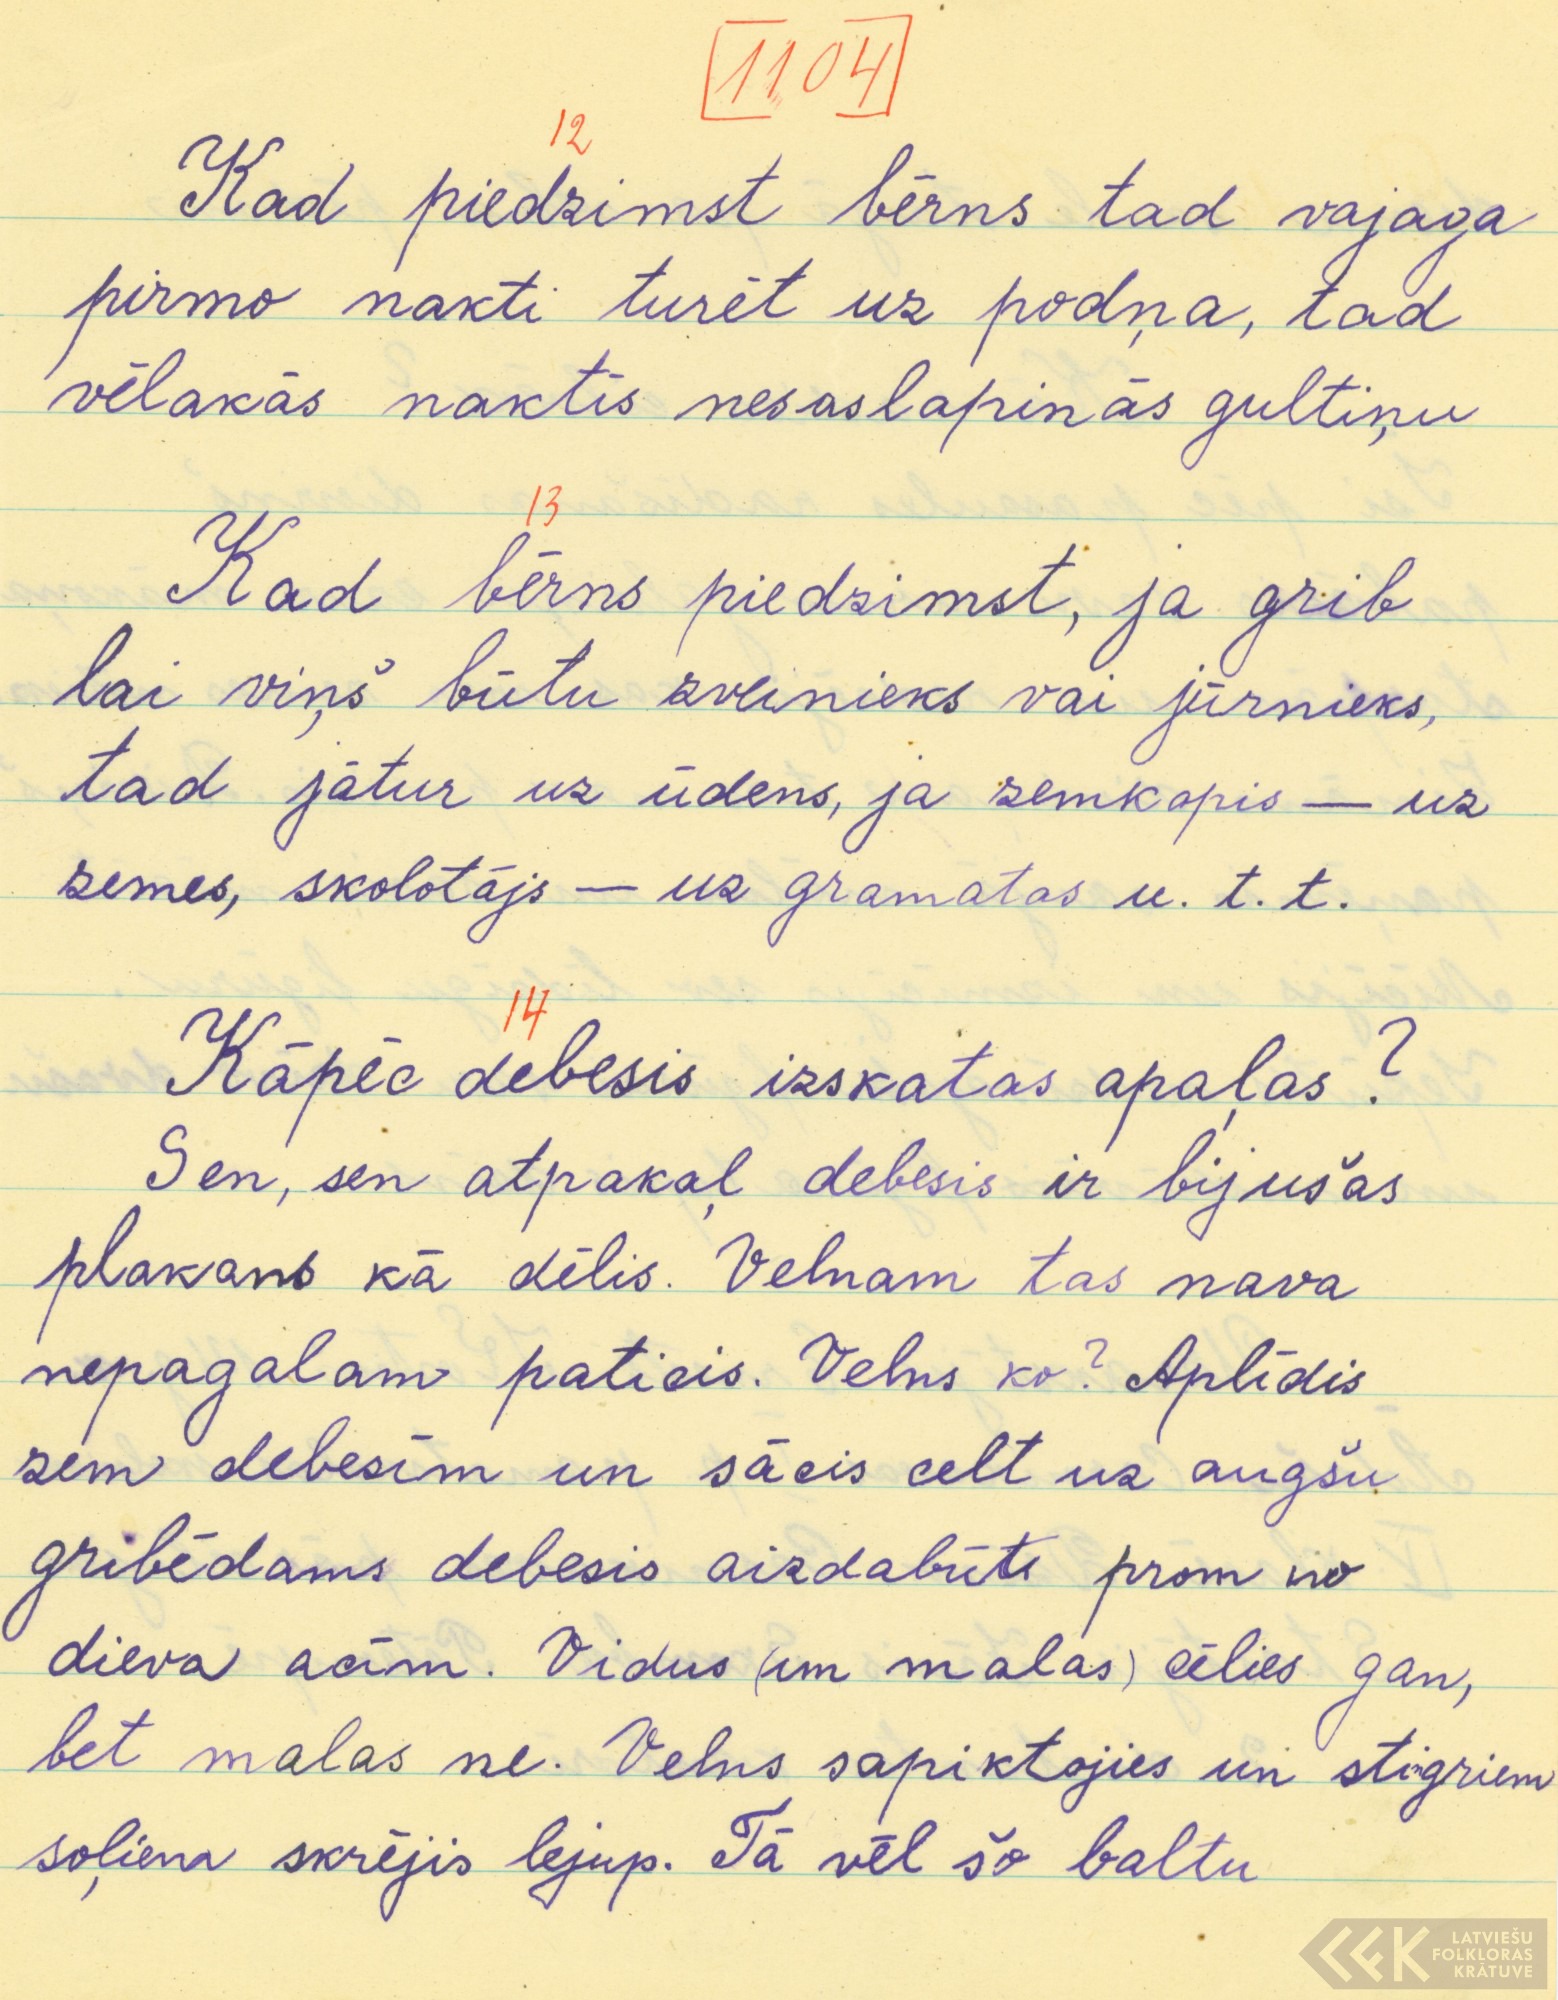 1104
12
Kad piedzimst bērns tad vajaga
pirmo nakti turēt uz podņa, tad
vēlakās naktīs nesaslapinās gultiņu
13
Kad bērns piedzimst, ja grib
lai viņš būtu zveinieks vai jūrnieks,
tad jātur uz ūdens, ja zemkopis — uz
zemes, skolotājs — uz gramatas u. t. t.
14
Kāpēc debesis izskatas apaļas?
Sen, sen atpakaļ debesis ir bijušas
plakans kā dēlis. Velnam tas nava
nepagalam paticis. Velns ko? Aplīdis
zem debesīm un sācis celt uz augšu
gribēdams debesis aizdabūte prom no
dieva acīm. Vidus (um malas) cēlies gan,
bet malas ne. Velns sapiktojies un stingriem
soļiena skrējis lejup. Tā vēl šo baltu
LATVIEŠU
FOLKLORAS
KRĀTUVE